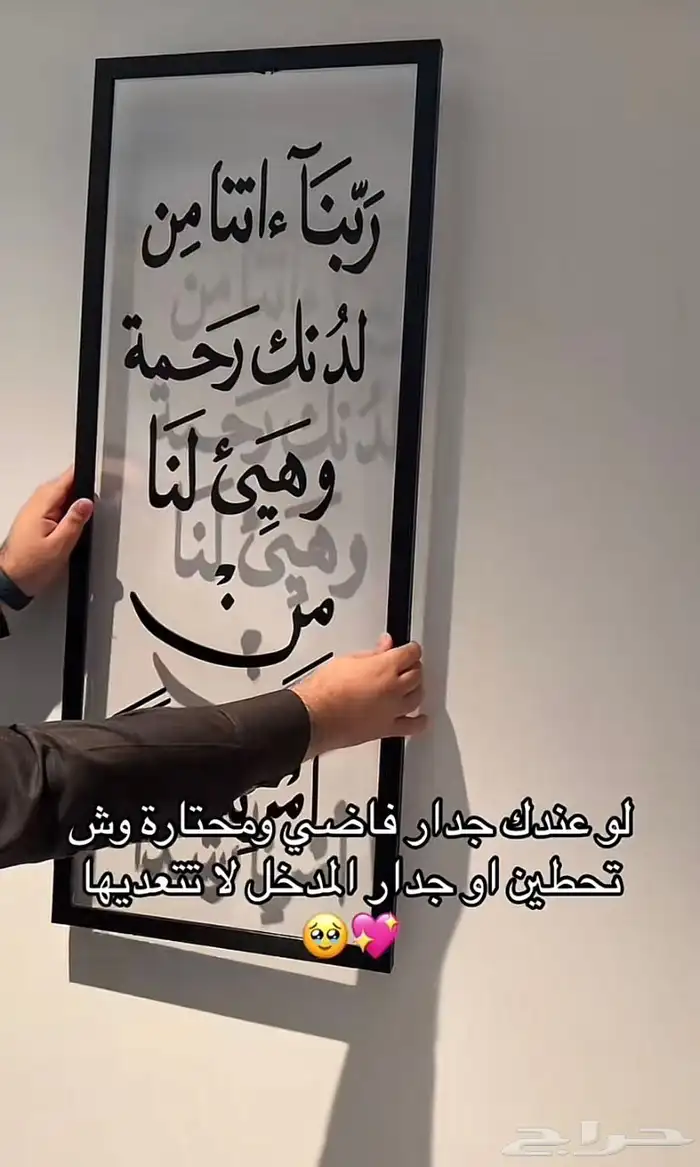 رَبَّنَآ ءاتنا مِن
لدُنك رَحمة
وهَيِّئ لَنَا
مِنْ
لو عندك جدار فاضي ومحتارة وش
تحطين او جدار المدخل لا تتعديها
🥹💖
حراج